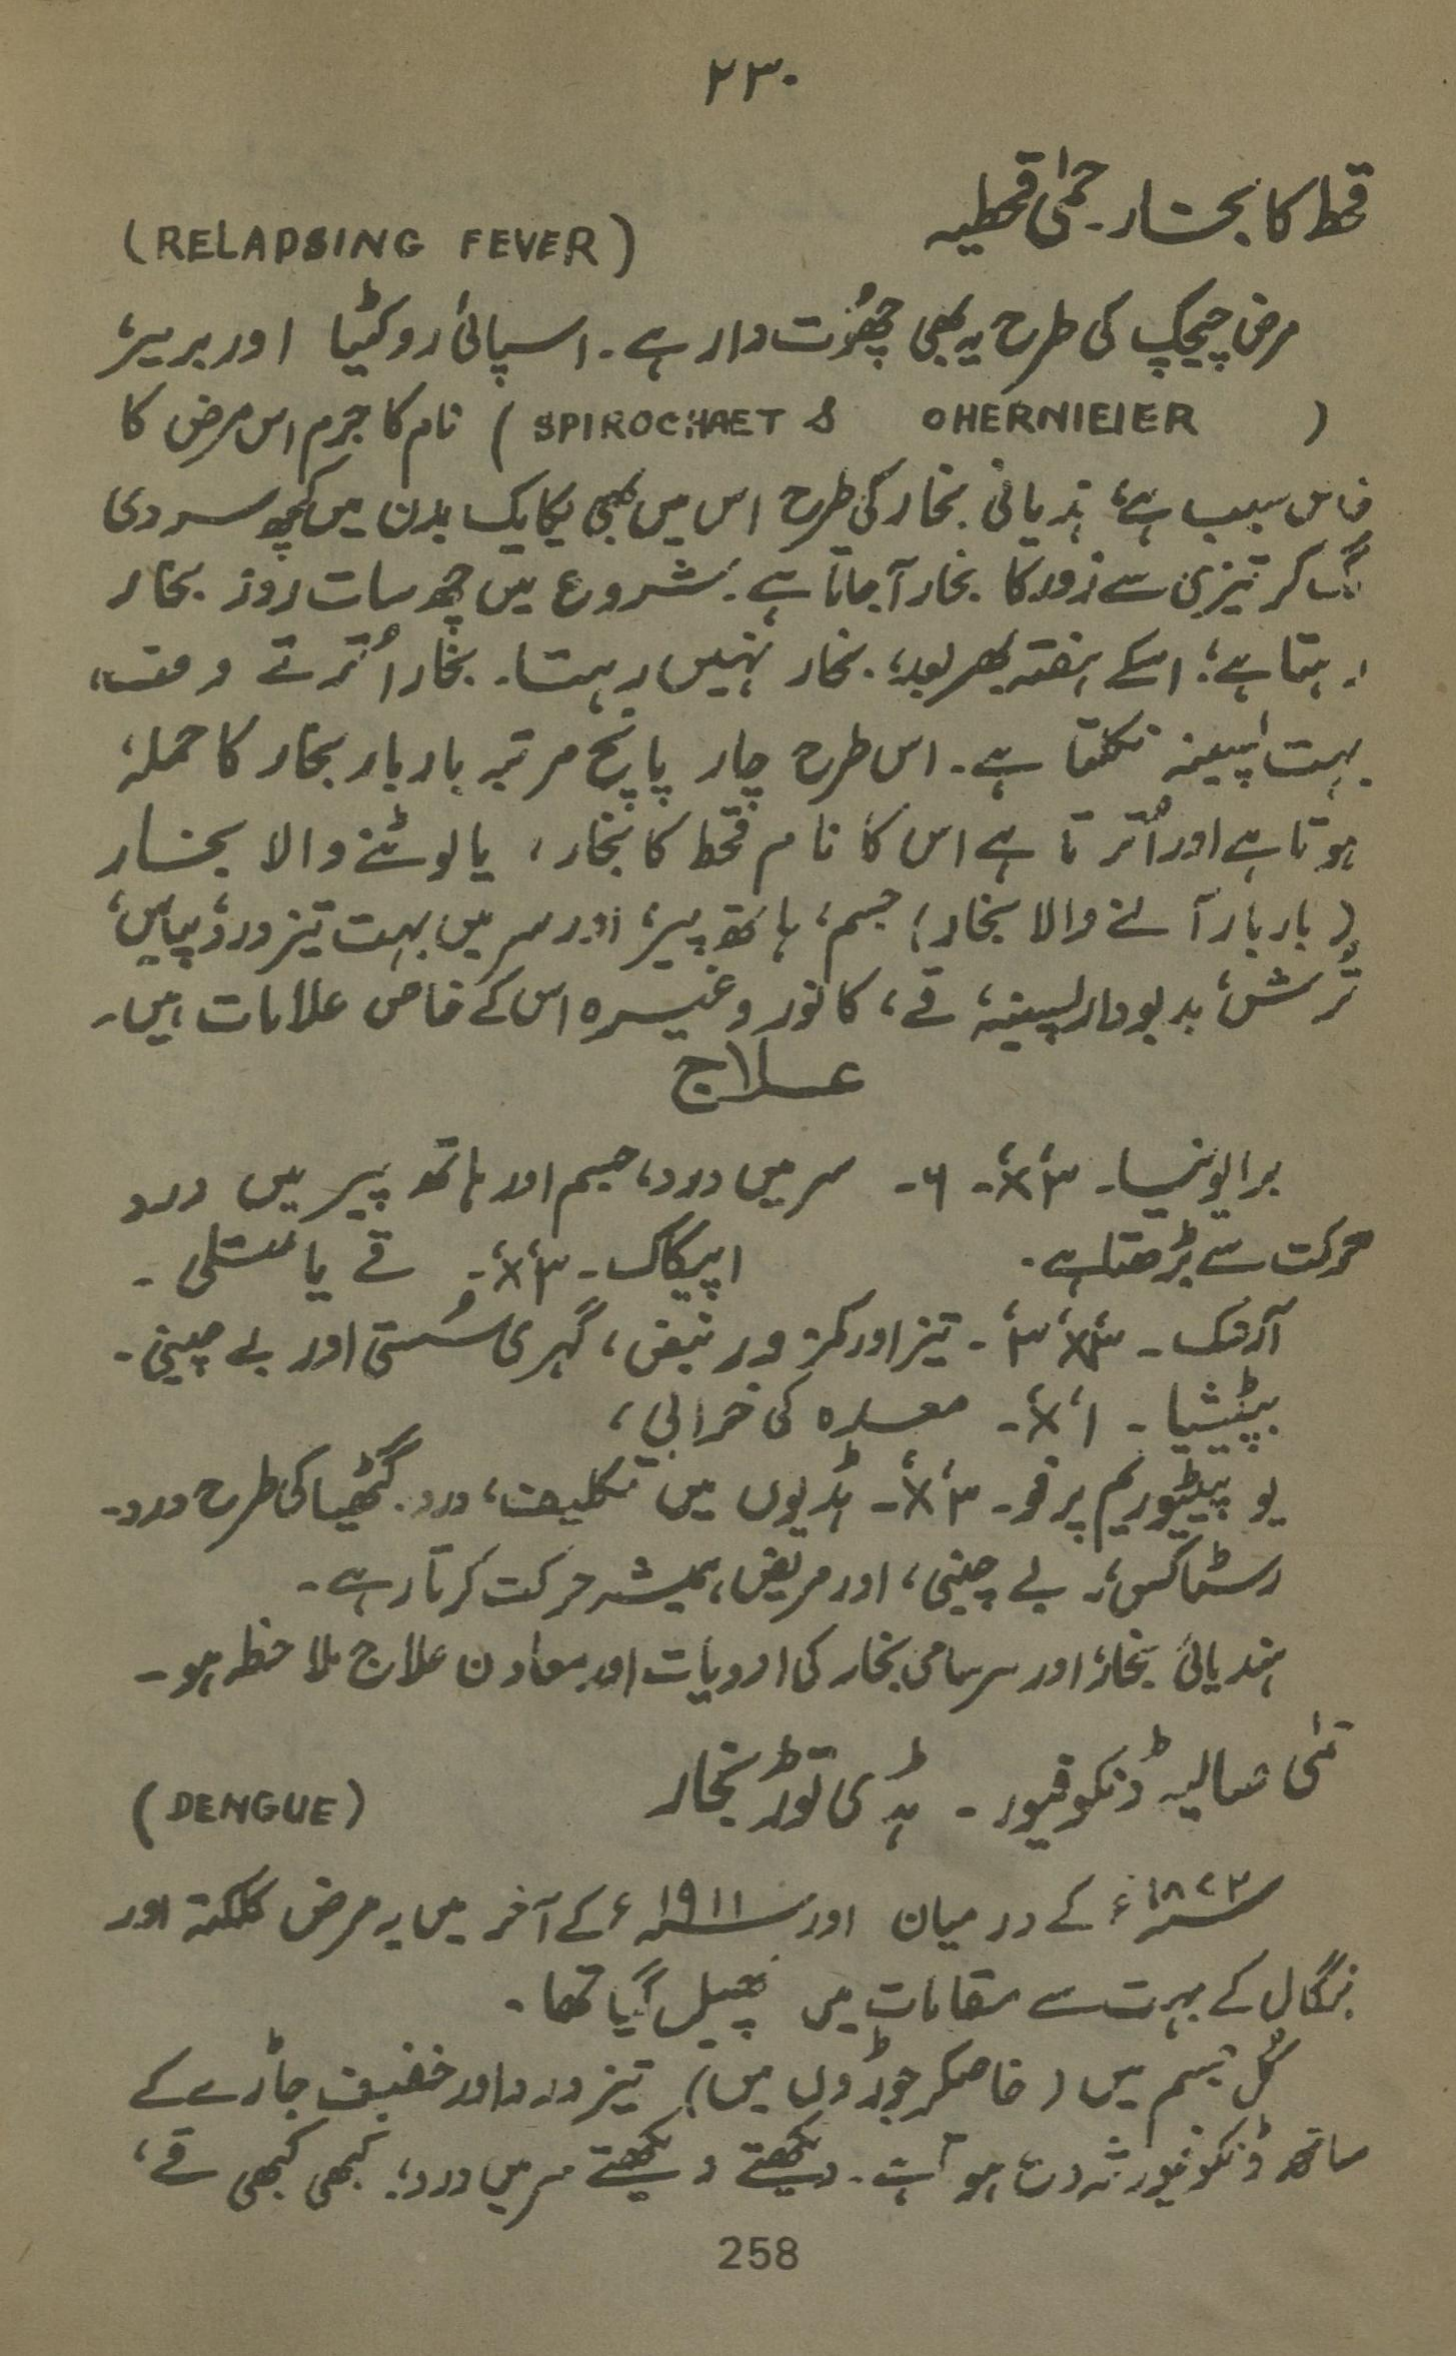 ۲۳۰
قحط کا بخار۔ حمیٰ قحطیہ
(RELAPSING FEVER)
مرض چیچک کی طرح یہ بھی چھُوت دار ہے۔ اسپائی روکٹیا اور بریئر
(SPIROCHAET & OHERNIEIER) نام کا جرم اس مرض کا
خاص سبب ہے، ہذیانی بخار کی طرح اس میں بھی یکایک بدن میں کچھ سردی
لگ کر تیزی سے زور کا بخار آ جاتا ہے۔ شروع میں چھ سات روز بخار
رہتا ہے؛ اسکے ہفتہ بھر بعد، بخار نہیں رہتا۔ بخار اُترتے وقت،
بہت پسینہ نکلتا ہے۔ اس طرح چار پانچ مرتبہ بار بار بخار کا حملہ
ہوتا ہے اور اُترتا ہے اس کا نام قحط کا بخار، یا لوٹنے والا بخار
(بار بار آنے والا بخار) جسم، ہاتھ پیر، اور سر میں بہت تیز درد، پیاس،
تُرش، بدبودار پسینہ، قے، کانور وغیرہ اس کے خاص علامات ہیں۔
علاج
برایونیا۔ ۳x، ۶۔ سر میں درد، جسم اور ہاتھ پیر میں درد
حرکت سے بڑھتا ہے۔ اپیکاک۔ ۳x۔ قے یا متلی۔
آرنک۔ ۳x، ۳۔ تیز اور کمزور نبض، گہری سُستی اور بے چینی۔
بپٹیشیا۔ ۱x۔ معدہ کی خرابی،
یوپیٹیوریم پرفو۔ ۳x۔ ہڈیوں میں تکلیف، درد۔ گٹھیا کی طرح درد۔
رسٹاکس،۔ بے چینی، اور مریض، ہمیشہ حرکت کرتا رہے۔
ہندیائی بخار، اور سرسامی بخار کی ادویات اور معاون علاج ملاحظہ ہو۔
ڈنکو فیور۔ ہڈی توڑ بخار
(DENGUE)
۱۸۷۲ء کے درمیان اور ۱۹۱۱ء کے آخر میں یہ مرض کلکتہ اور
بنگال کے بہت سے مقامات میں پھیل گیا تھا۔
کُل جسم میں (خاصکر جوڑوں میں) تیز درد اور خفیف جاڑے کے
ساتھ ڈنکو فیور شروع ہوتا ہے۔ دیکھتے دیکھتے سر میں درد، کبھی کبھی قے،
258